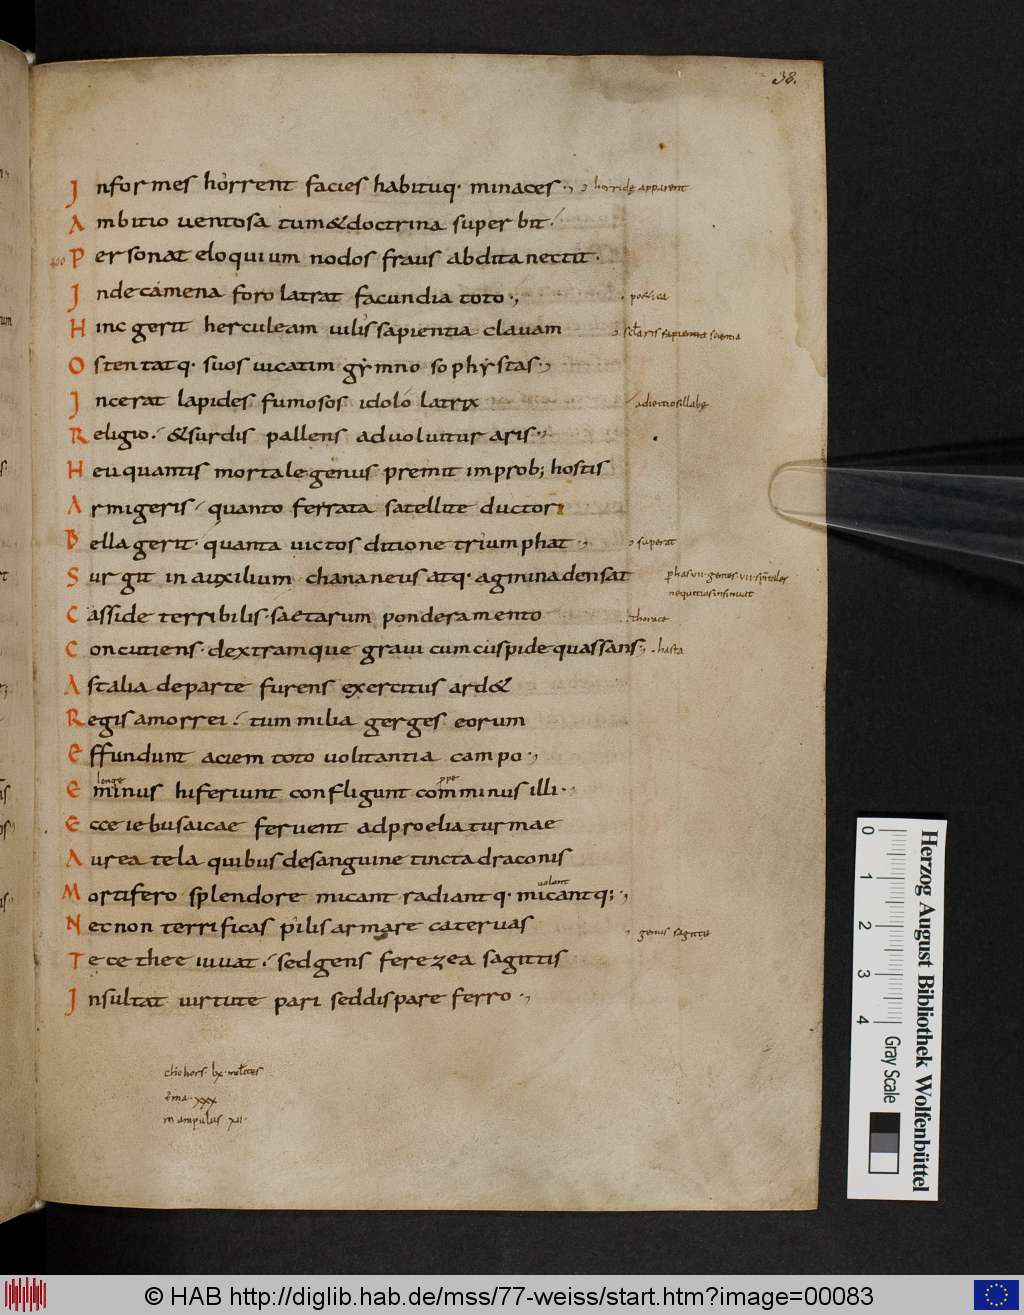 38.
Informes horrent facies habituq· minaces·,
horride apparent
Ambitio uentosa tum & doctrina superbit·
400 Personat eloquium nodos fraus abdita nectit·
Inde camena foro latrat facundia toto·,
poetica
Hinc gerit herculeam uilis sapientia clauam
sapientia
Ostentatq· suos uicatim gymnosophystas·,
Incerat lapides fumosos idololatrix
Religio· & surdis pallens aduoluitur aris·,
Heu quantis mortale genus premit improb; hostis
Armigeris quanto ferrata satellite ductor
Bella gerit quanta uictos ditione triumphat·,
superat
Surgit in auxilium chananeus atq· agmina densat
nequitias insinuat
Casside terribilis· saetarum pondera mento
thorace
Concutiens· dextramque graui cum cuspide quassans;,
hasta
Ast alia de parte furens exercitus ard&
Regis amorrei· tum milia gerges eorum
Effundunt aciem toto uolitantia campo·,
longe
ppe
Eminus hi feriunt confligunt comminus illi·,
Ecce iebusaicae feruent ad proelia turmae
Aurea tela quibus de sanguine tincta draconis
uolant
Mortifero splendore micant radiantq· micantq;·,
Nec non terrificas pilis armare cateruas
genus sagitte
Te cethee iuuat· sed gens ferezea sagittis
Insultat uirtute pari sed dispare ferro·,
chohors· lx· milites
xxx
manipulus xii·
0 1 2 3 4
Gray Scale
Herzog August Bibliothek Wolfenbüttel
© HAB http://diglib.hab.de/mss/77-weiss/start.htm?image=00083